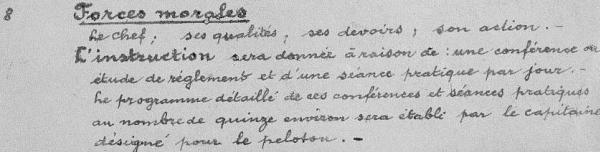 8 Forces morales
Le chef; ses qualités; ses devoirs; son action. -
L'instruction sera donnée à raison de: une conférence ou
étude de règlement et d'une séance pratique par jour. -
Le programme détaillé de ces conférences et séances pratiques
au nombre de quinze environ sera établi par le capitaine
désigné pour le peloton. -